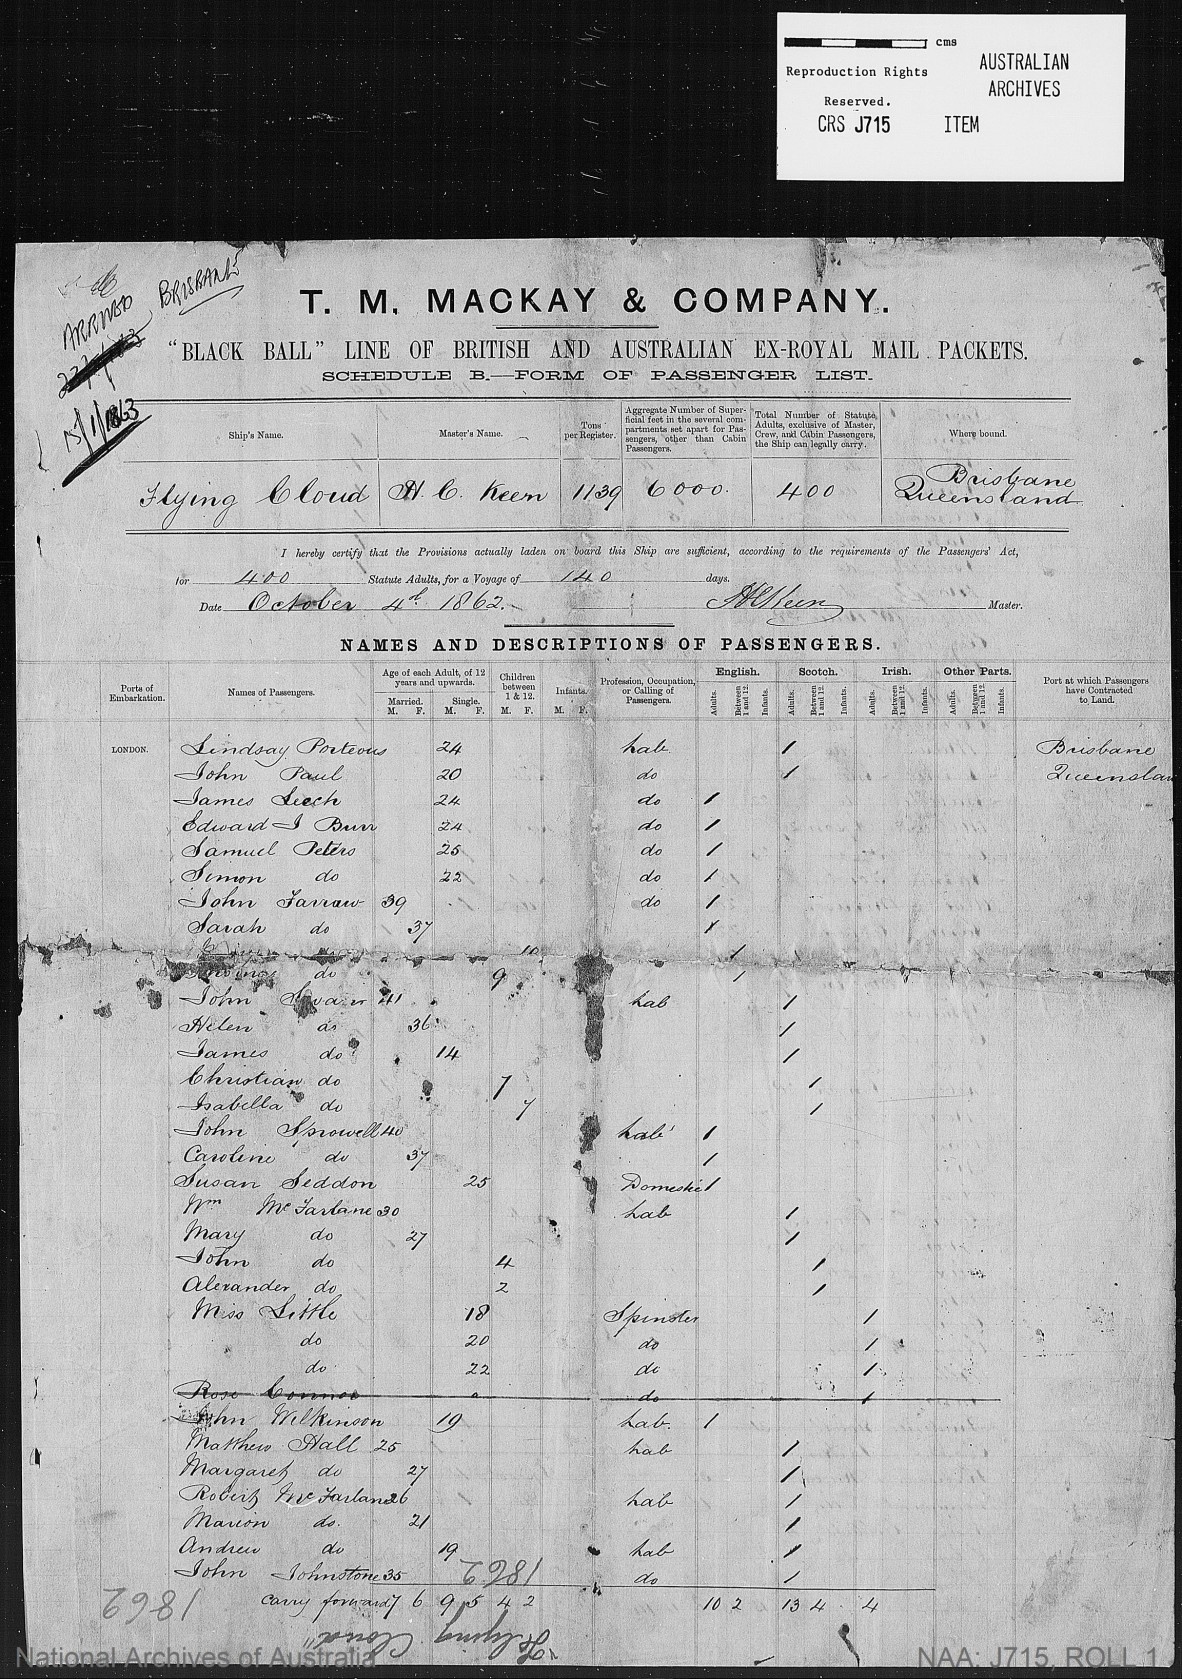 cms
AUSTRALIAN
Reproduction Rights
ARCHIVES
Reserved.
CRS J715 ITEM
ARRIVED BRISBANE
15/1/1863
T. M. MACKAY & COMPANY.
"BLACK BALL" LINE OF BRITISH AND AUSTRALIAN EX-ROYAL MAIL PACKETS.
SCHEDULE B.—FORM OF PASSENGER LIST.
Ship's Name. Master's Name. Tons per Register. Aggregate Number of Superficial feet in the several compartments set apart for Passengers, other than Cabin Passengers. Total Number of Statute Adults, exclusive of Master, Crew, and Cabin Passengers, the Ship can legally carry. Where bound.
Flying Cloud H. C. Keen 1139 6000. 400 Brisbane Queensland
I hereby certify that the Provisions actually laden on board this Ship are sufficient, according to the requirements of the Passengers' Act,
for 400 Statute Adults, for a Voyage of 140 days.
Date October 4th 1862. HCKeen Master.
NAMES AND DESCRIPTIONS OF PASSENGERS.
Ports of Embarkation. Names of Passengers. Age of each Adult, of 12 years and upwards. Married. M. F. Single. M. F. Children between 1 & 12. M. F. Infants. M. F. Profession, Occupation, or Calling of Passengers. English. Adults. Between 1 and 12. Infants. Scotch. Adults. Between 1 and 12. Infants. Irish. Adults. Between 1 and 12. Infants. Other Parts. Adults. Between 1 and 12. Infants. Port at which Passengers have Contracted to Land.
LONDON. Lindsay Porteous 24 Lab 1 Brisbane
John Paul 20 do 1 Queenslan
James Leech 24 do 1
Edward J Burr 24 do 1
Samuel Peters 25 do 1
Simon do 22 do 1
John Farrow 39 do 1
Sarah do 37 1
10 1
do 9 1
John 41 Lab 1
Helen do 36 1
James do 14 1
Christian do 7 1
Isabella do 7 1
John Sprowell 40 Lab 1
Caroline do 37 1
Susan Seddon 25 Domestic 1
Wm McFarlane 30 Lab 1
Mary do 27 1
John do 4 1
Alexander do 2 1
Miss Little 18 Spinster 1
do 20 do 1
do 22 do 1
Rose Connor do 1
John Wilkinson 19 Lab. 1
Matthew Hall 25 Lab 1
Margaret do 27 1
Robert McFarlane 26 Lab 1
Marion do. 21 1
Andrew do 19 Lab 1
John Johnstone 35 do 1
1862
carry forward 7 6 9 5 4 2 10 2 13 4 4
1862
"Flying Cloud"
National Archives of Australia NAA: J715, ROLL 1